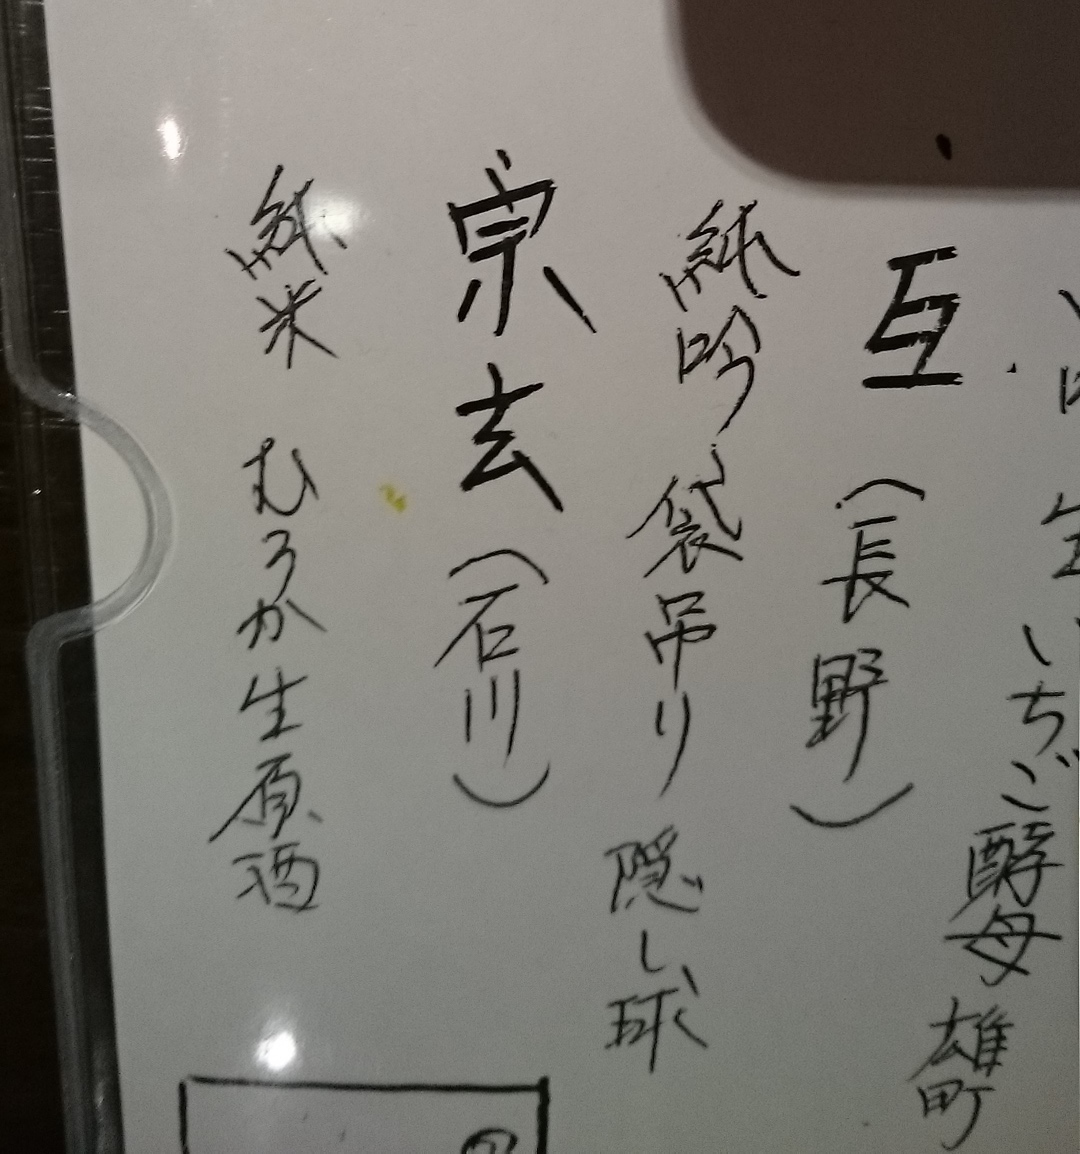 生いちご酵母 雄町
互 (長野)
純吟 袋吊り 隠し球
宗玄 (石川)
純米 むろか生原酒